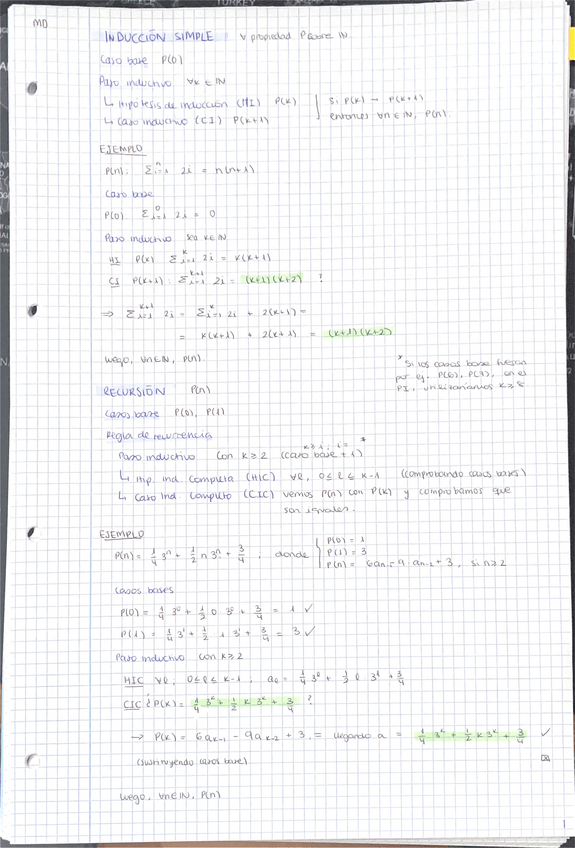 MD
INDUCCIÓN SIMPLE ∀ propiedad P sobre ℕ.
Caso base P(0)
Paso inductivo ∀k ∈ ℕ
↳ Hipótesis de inducción (HI) P(k) | Si P(k) → P(k+1)
↳ Caso inductivo (CI) P(k+1) | entonces ∀n ∈ ℕ, P(n).
EJEMPLO
P(n): Σ_{i=1}^{n} 2i = n(n+1)
Caso base
P(0) Σ_{i=1}^{0} 2i = 0
Paso inductivo sea k∈ℕ
HI P(k) Σ_{i=1}^{k} 2i = k(k+1)
CI P(k+1): Σ_{i=1}^{k+1} 2i = (k+1)(k+2) ?
⇒ Σ_{i=1}^{k+1} 2i = Σ_{i=1}^{k} 2i + 2(k+1) =
= k(k+1) + 2(k+1) = (k+1)(k+2)
Luego, ∀n∈ℕ, P(n).
* Si los casos base fueran
por ej. P(6), P(7), en el
PI, utilizaríamos k≥8
RECURSIÓN P(n)
Casos base P(0), P(1)
Regla de recurrencia
Paso inductivo con k≥2 (caso base + 1) *
↳ Hip. ind. Completa (HIC) ∀ℓ, 0≤ℓ≤k-1 (comprobando casos bases)
↳ Caso Ind Completo (CIC) vemos P(n) con P(k) y comprobamos que
son iguales.
EJEMPLO
P(n) = 1/4 3ⁿ + 1/2 n 3ⁿ + 3/4, donde
P(0) = 1
P(1) = 3
P(n) = 6aₙ₋₁ - 9 · aₙ₋₂ + 3, si n≥2
Casos bases
P(0) = 1/4 3⁰ + 1/2 0 3⁰ + 3/4 = 1 ✓
P(1) = 1/4 3¹ + 1/2 1 3¹ + 3/4 = 3 ✓
Paso inductivo con k≥2
HIC ∀ℓ, 0≤ℓ≤k-1, aℓ = 1/4 3^ℓ + 1/2 ℓ 3^ℓ + 3/4
CIC ¿P(k) = 1/4 3ᵏ + 1/2 k 3ᵏ + 3/4 ?
→ P(k) = 6aₖ₋₁ - 9aₖ₋₂ + 3 = llegando a = 1/4 3ᵏ + 1/2 k 3ᵏ + 3/4 ✓
(sustituyendo casos base)
Luego, ∀n∈ℕ, P(n)
1